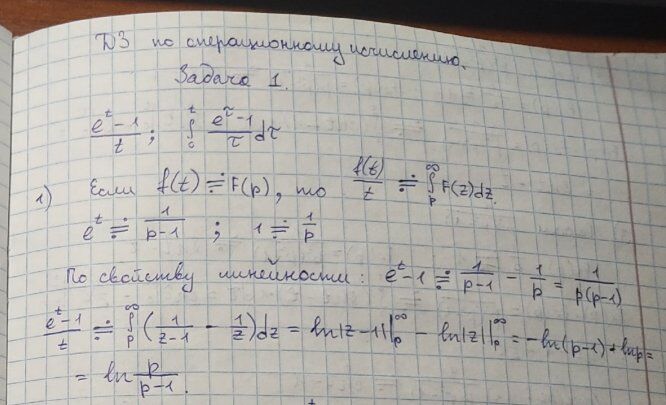 ДЗ по операционному исчислению.
Задача 1.
(e^t - 1)/t ; ∫_0^t (e^τ - 1)/τ dτ
1) Если f(t) ≓ F(p), то f(t)/t ≓ ∫_p^∞ F(z)dz.
e^t ≓ 1/(p-1) ; 1 ≓ 1/p
По свойству линейности: e^t - 1 ≓ 1/(p-1) - 1/p = 1/(p(p-1))
(e^t - 1)/t ≓ ∫_p^∞ (1/(z-1) - 1/z)dz = ln|z-1||_p^∞ - ln|z||_p^∞ = -ln(p-1) + lnp =
= ln p/(p-1).